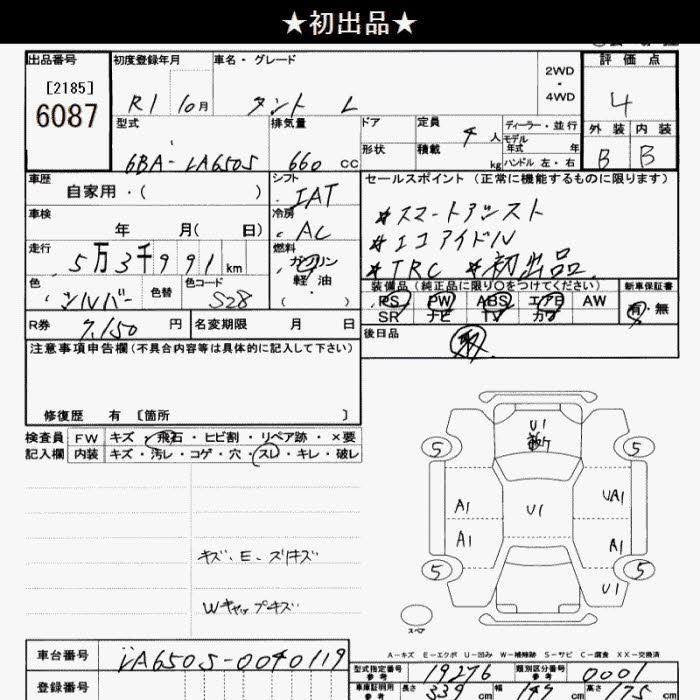 ★初出品★
出品番号
[2185]
6087
初度登録年月
R1 10月
車名・グレード
タント L
2WD
・
4WD
評価点
4
外装 内装
B B
型式
6BA-LA650S
排気量
660 cc
ドア
形状
定員
4 人
積載
kg
ディーラー・並行
モデル年式 年
ハンドル 左・右
車歴
自家用・( )
シフト
IAT
セールスポイント (正常に機能するものに限ります)
*スマートアシスト
*エコアイドル
*TRC *初出品
車検
年 月( 日)
冷房
AC
走行
5万3千991km
燃料
ガソリン
軽油
( )
色
シルバー
色替
色コード
S28
装備品 (純正品に限り○をつけてください)
PS PW ABS エアB AW
SR ナビ TV カワ
新車保証書
有・無
R券
7,150 円
名変期限 月 日
後日品
注意事項申告欄(不具合内容等は具体的に記入して下さい)
修復歴 有 [箇所 ]
検査員
記入欄
FW キズ・飛石・ヒビ割・リペア跡・×要
内装 キズ・汚レ・コゲ・穴・スレ・キレ・破レ
U1
5 5
A1 U1 UA1
A1 A1
5 5
U1
キズ・E・スリキズ
Wキャップキズ
スペア
A-キズ E-エクボ U-凹み W-補修跡 S-サビ C-腐食 XX-交換済
車台番号
LA650S-0040119
登録番号
型式指定番号
参考
19276
類別区分番号
参考
0001
車庫証明用
参考
長さ 339 cm 幅 147 cm 高さ 175 cm